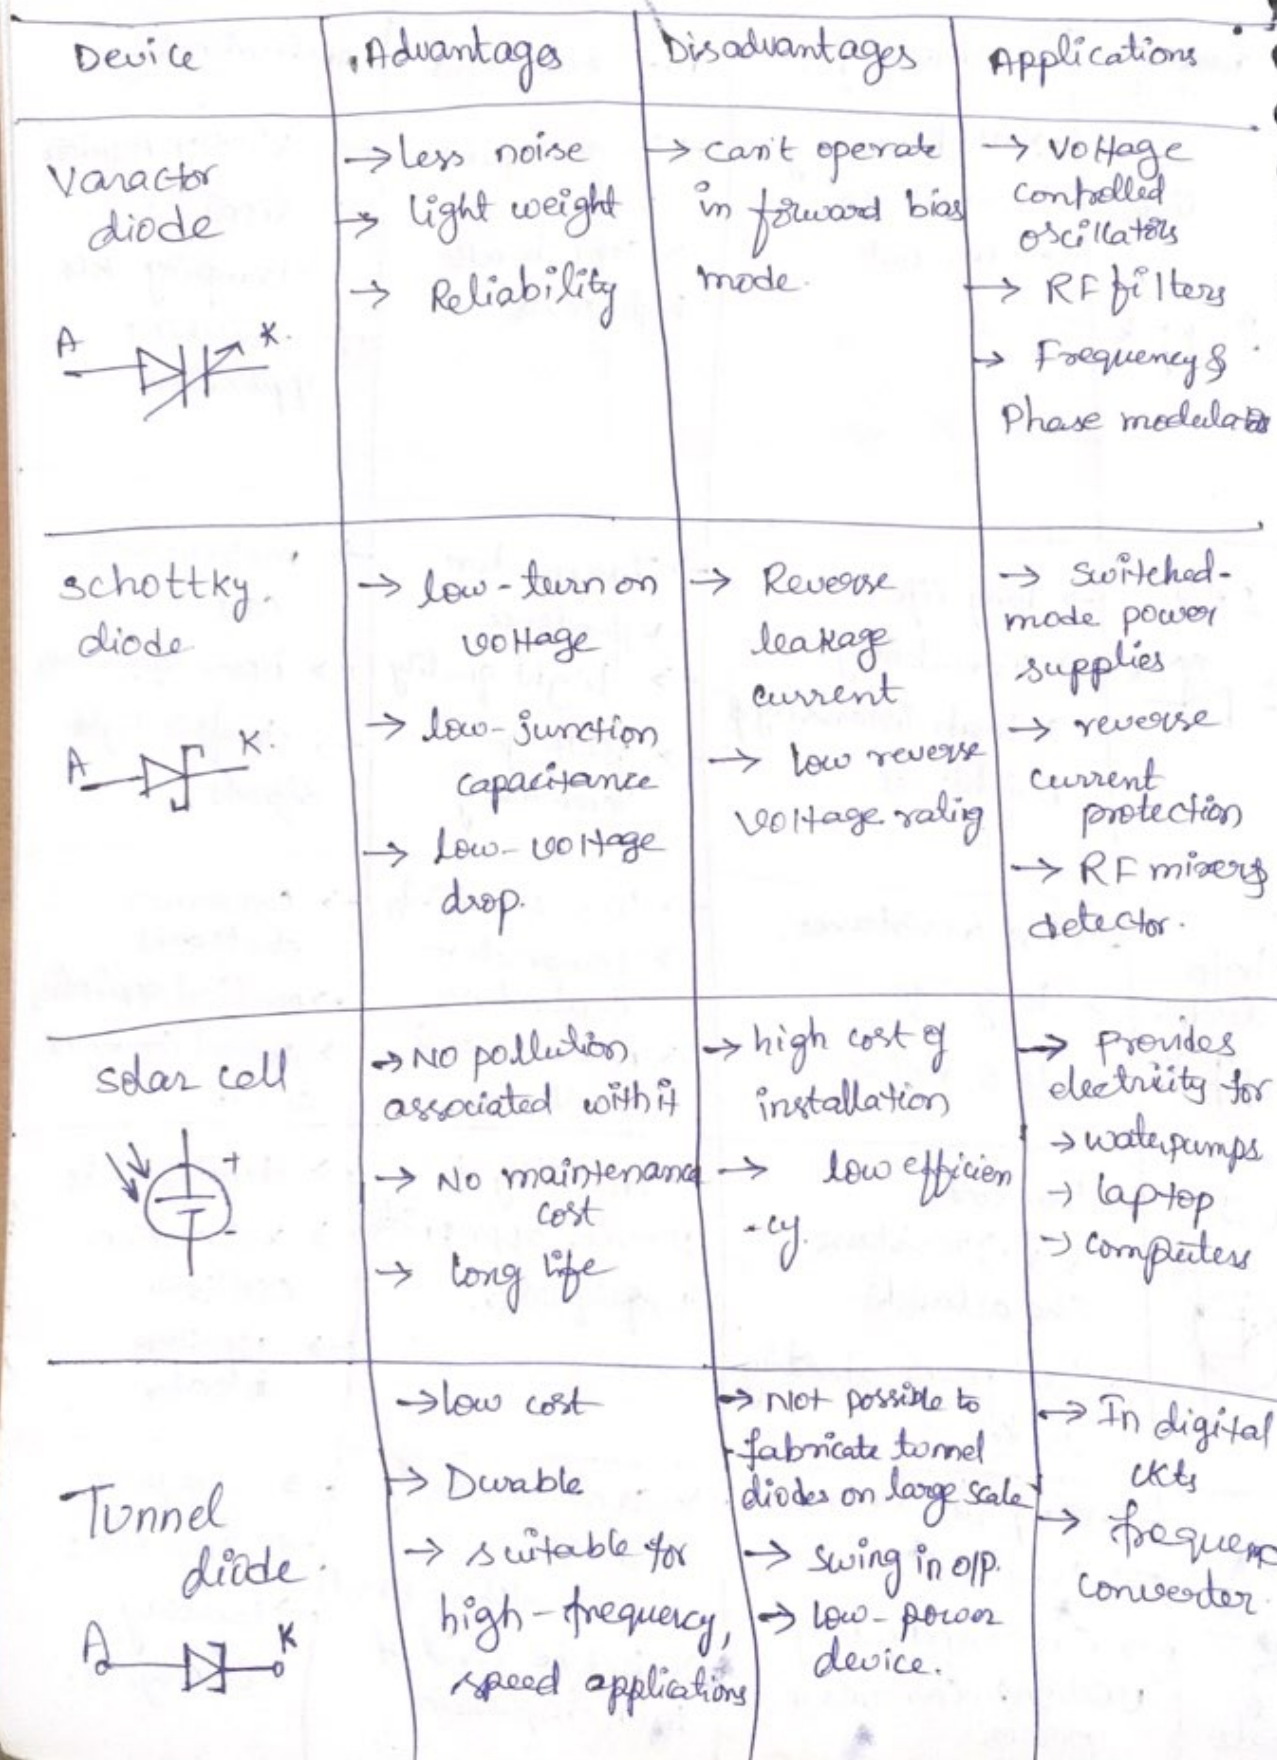 Device
Advantages
Disadvantages
Applications
Varactor
diode
A
K
→ Less noise
→ Light weight
→ Reliability
→ can't operate
in forward bias
mode.
→ Voltage
controlled
oscillators
→ RF filters
→ Frequency &
Phase modulators
Schottky.
diode
A
K.
→ low-turn on
voltage
→ low-junction
capacitance
→ low-voltage
drop.
→ Reverse
leakage
current
→ low reverse
voltage ratig
→ switched-
mode power
supplies
→ reverse
current
protection
→ RF mixers
detector.
solar cell
+
-
→ NO pollution
associated with it
→ No maintenance
cost
→ long life
→ high cost of
installation
→ low efficien
-cy.
→ provides
electricity for
→ waterpumps
→ laptop
→ computers
Tunnel
diode.
A
K
→ low cost
→ Durable
→ suitable for
high-frequency,
speed applications
→ Not possible to
fabricate tunnel
diodes on large scale
→ swing in o/p.
→ low-power
device.
→ In digital
ckts
→ frequenc
converter.